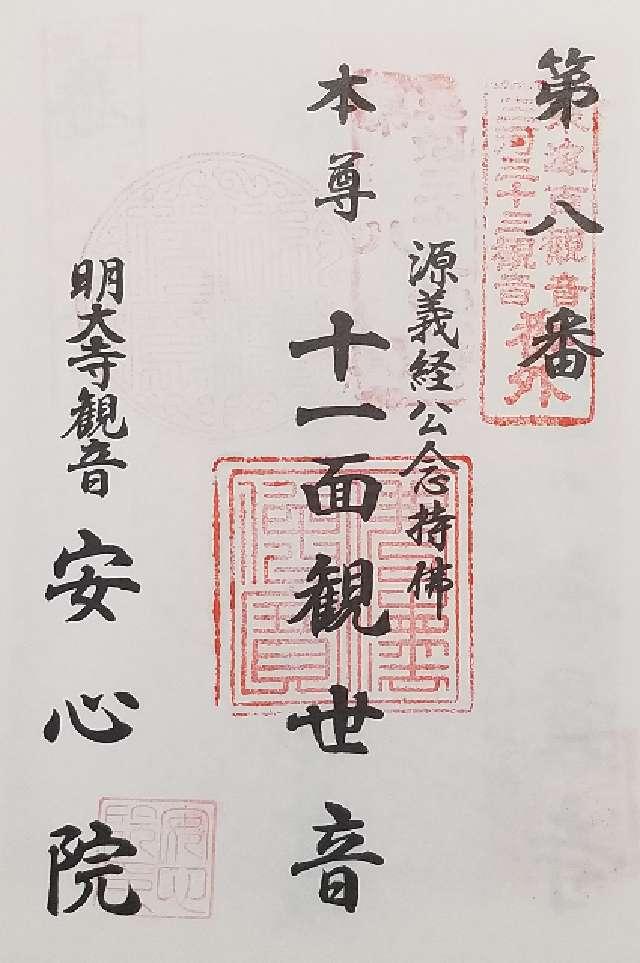 第八番
東海百観音
三河三十三観音
源義経公念持佛
本尊 十一面観世音
明大寺観音 安心院